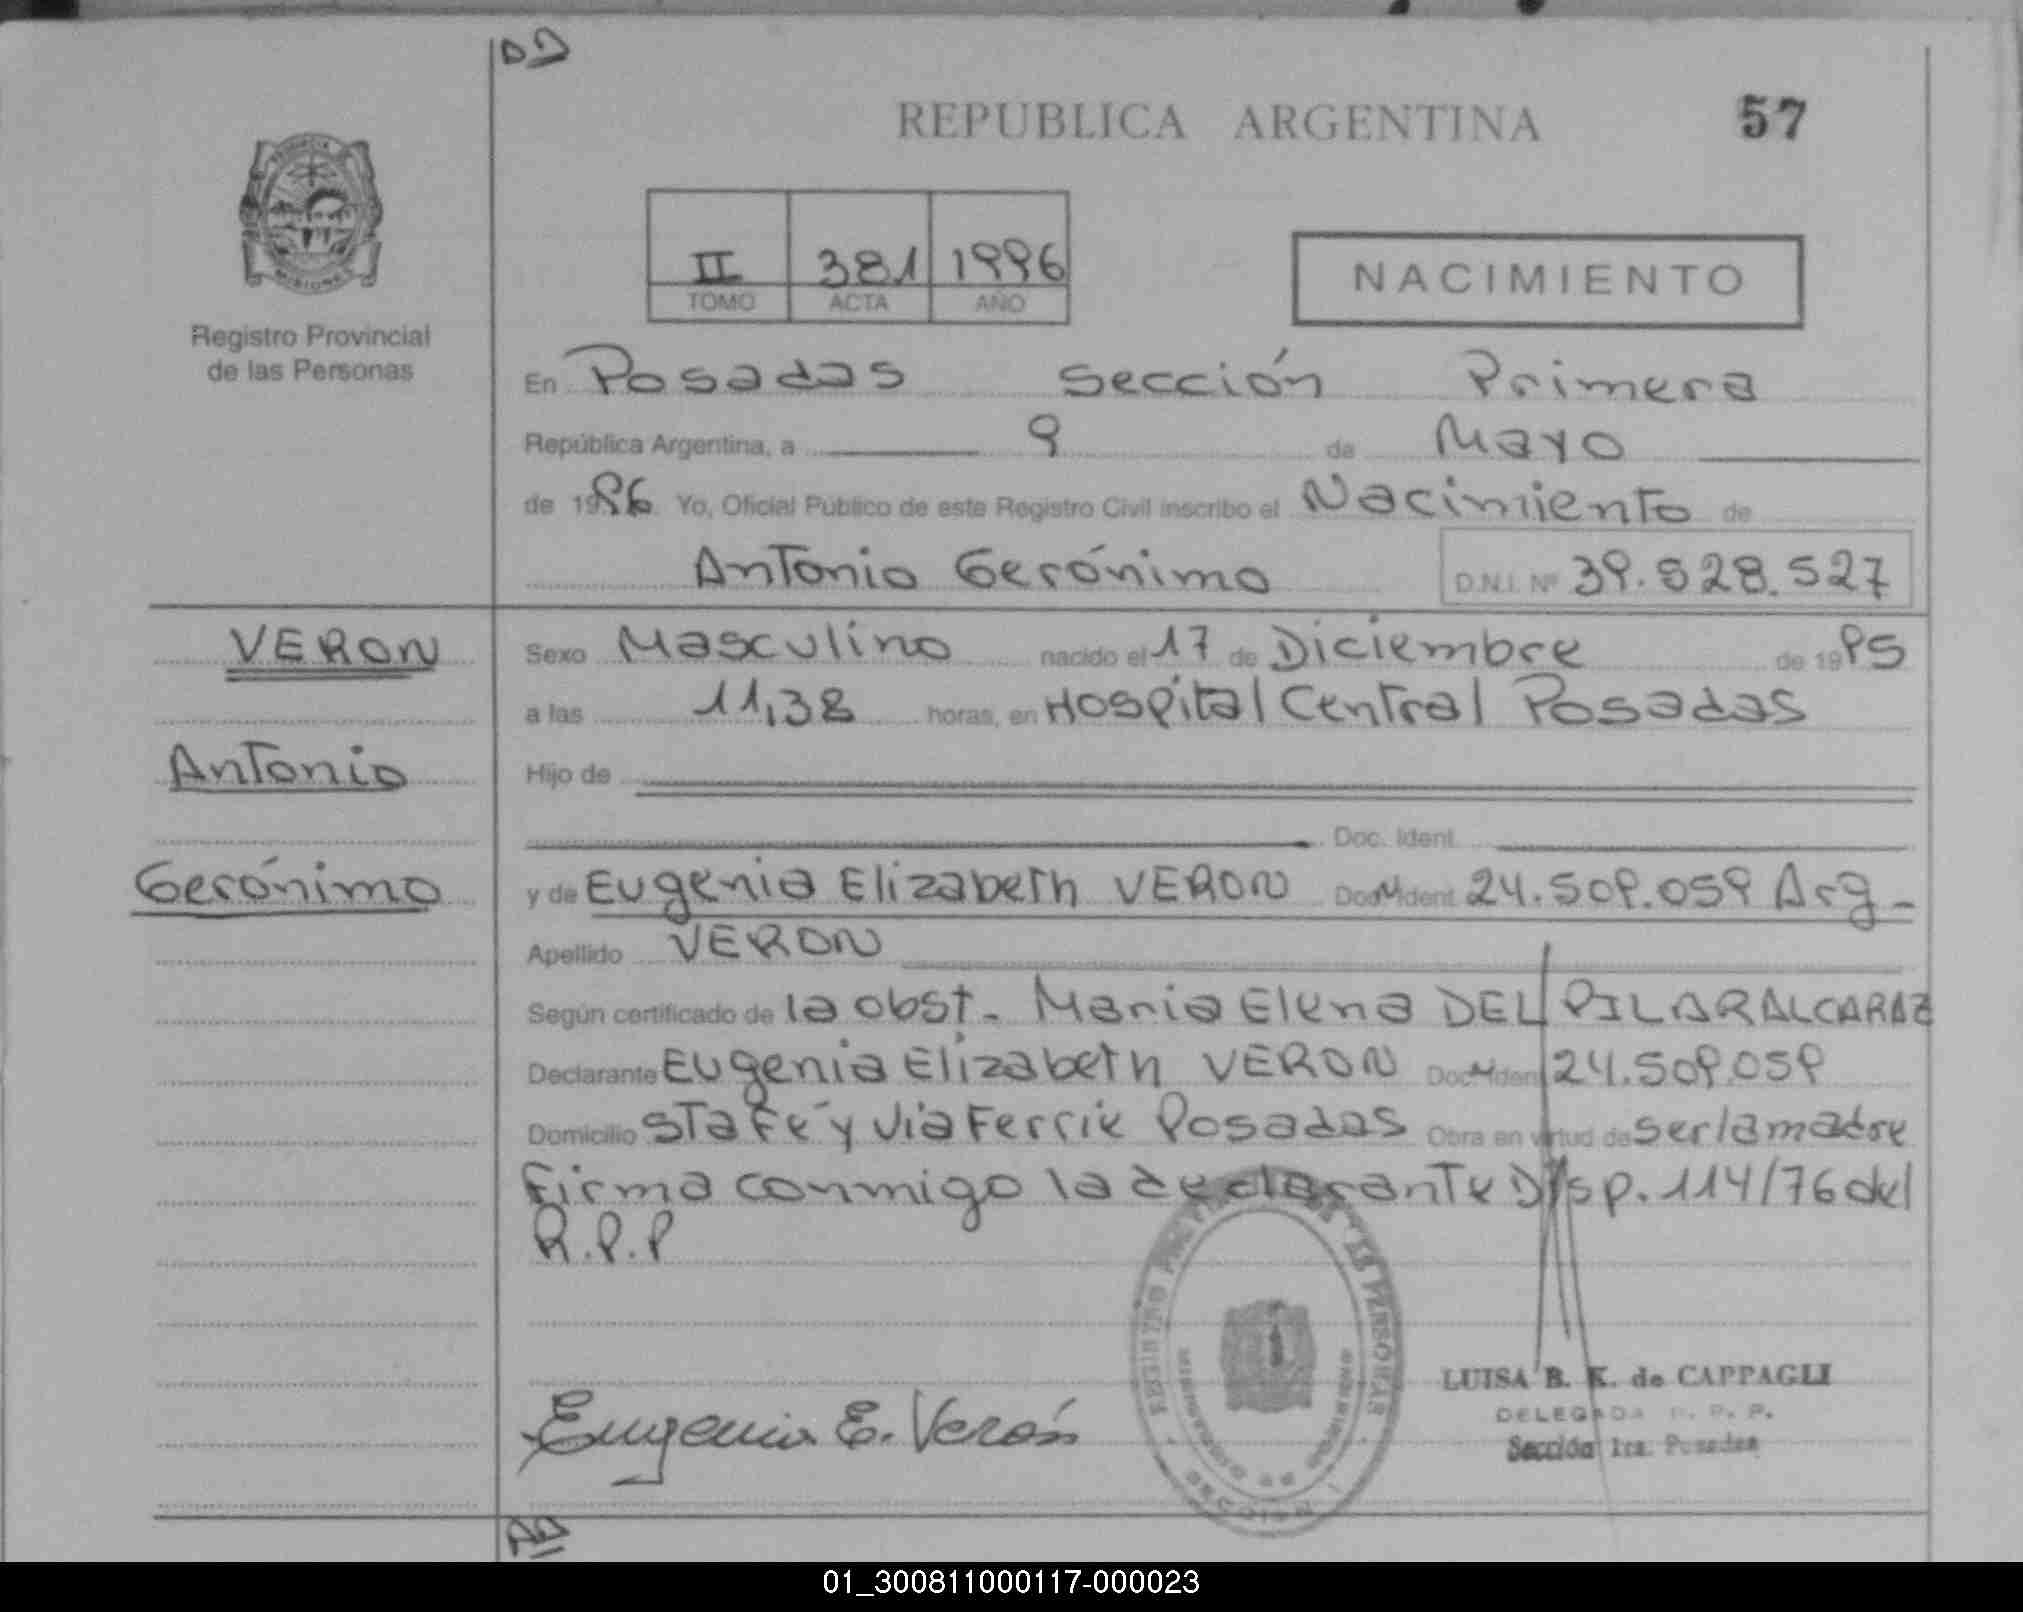 DD
REPUBLICA ARGENTINA
57
II 381 1996
TOMO ACTA AÑO
NACIMIENTO
Registro Provincial
de las Personas
En Posadas Sección Primera
República Argentina, a 9 de Mayo
de 1996 Yo, Oficial Público de este Registro Civil inscribo el Nacimiento de
Antonio Gerónimo D.N.I. Nº 39.528.527
VERON
Sexo Masculino nacido el 17 de Diciembre de 1995
a las 11,38 horas, en Hospital Central Posadas
Antonio
Hijo de
Doc. Ident.
Gerónimo
y de Eugenia Elizabeth VERON Doc. Ident. 24.509.059 Arg-
Apellido VERON
Según certificado de la obst. Maria Elena DEL PILAR ALCARAZ
Declarante Eugenia Elizabeth VERON Doc. Ident 24.509.059
Domicilio Sta Fé y Via Ferrie Posadas Obra en virtud de ser la madre
Firma conmigo la declarante Disp. 114/76 del
R.P.P
Eugenia E. Verón
LUISA B. K. de CAPPAGLI
DELEGADA R. P. P.
Sección 1ra. Posadas
01_300811000117-000023